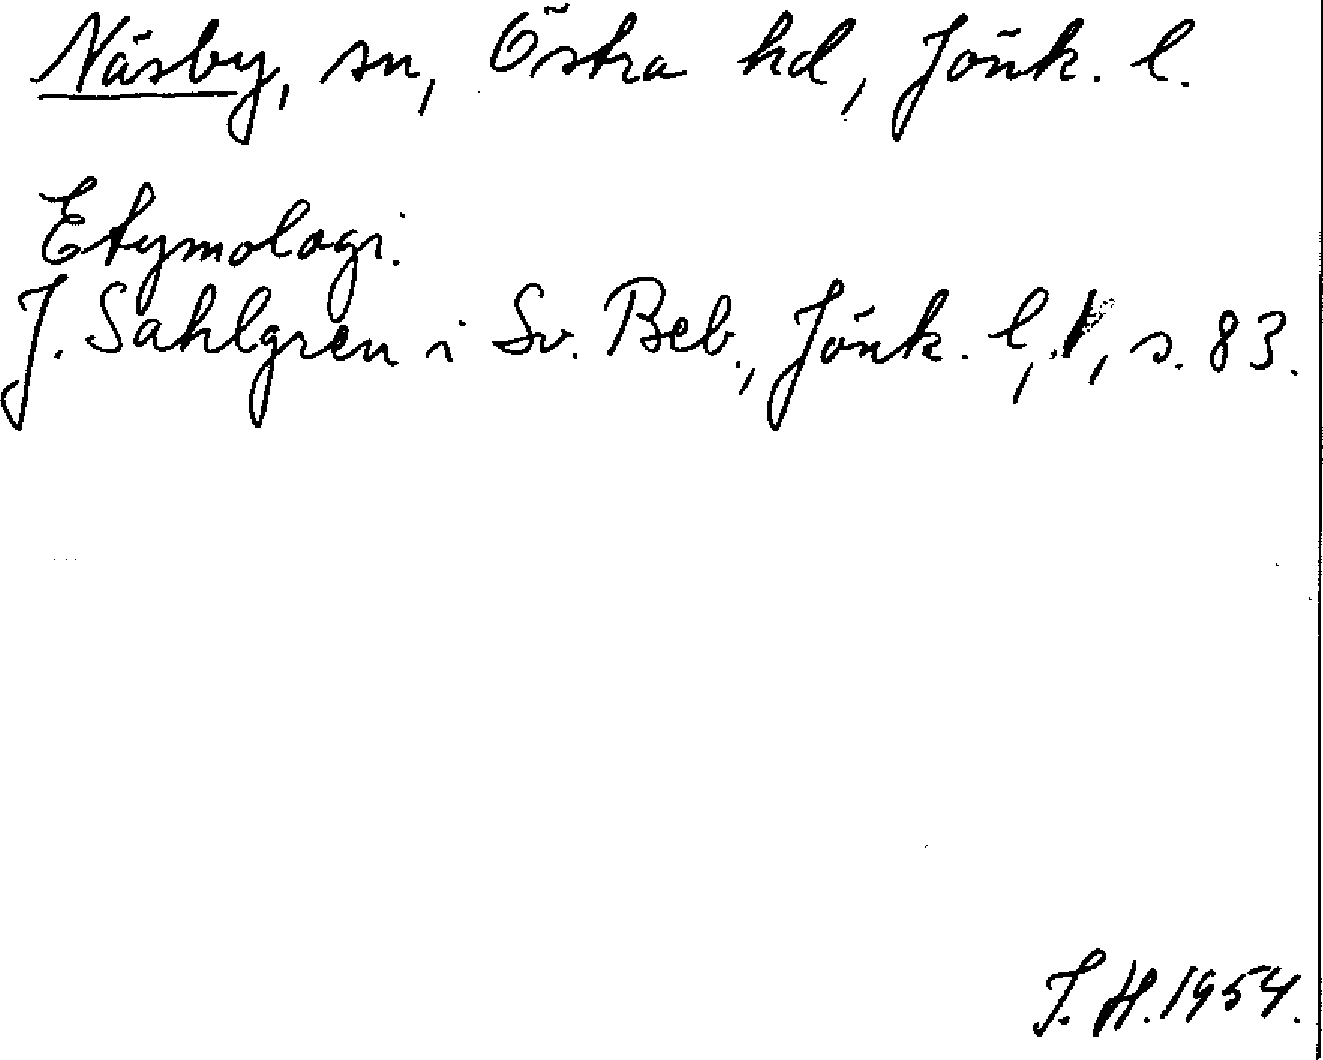 Näsby, sn, Östra hd, Jönk. l.
Etymologi.
J. Sahlgren i Sv. Beb., Jönk. l, 1, s. 83.
J. H. 1954.